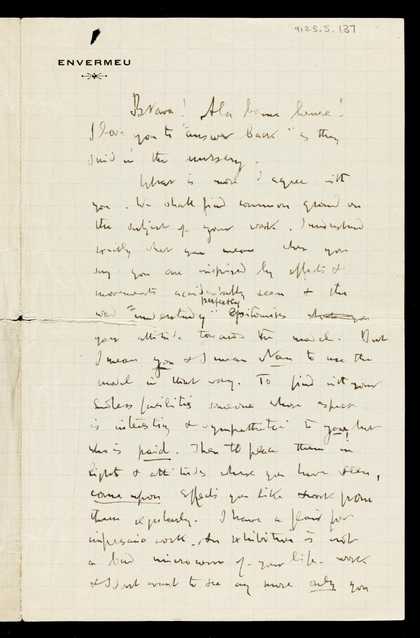 9125.5.137
ENVERMEU
Bravo! A la bonne heure!
I love you to "answer back" as they
said in the nursery.
What is more I agree with
you. We shall find common ground on
the subject of your work. I understand
exactly what you mean when you
say you are inspired by effects &
movements accidentally seen & the
word "understudy" perfectly epitomises
your attitude towards the model. But
I mean you & I mean Nan to use the
model in that way. To find with your
endless facilities someone whose aspect
is interesting & sympathetic to you, but
who is paid. Then to place them in
lights & attitudes where you have seen,
come upon effects you like & work from
them regularly. I have a flair for
impresario work. An exhibition is not
a bad microcosm of your life work
& I don't want to see any more only you